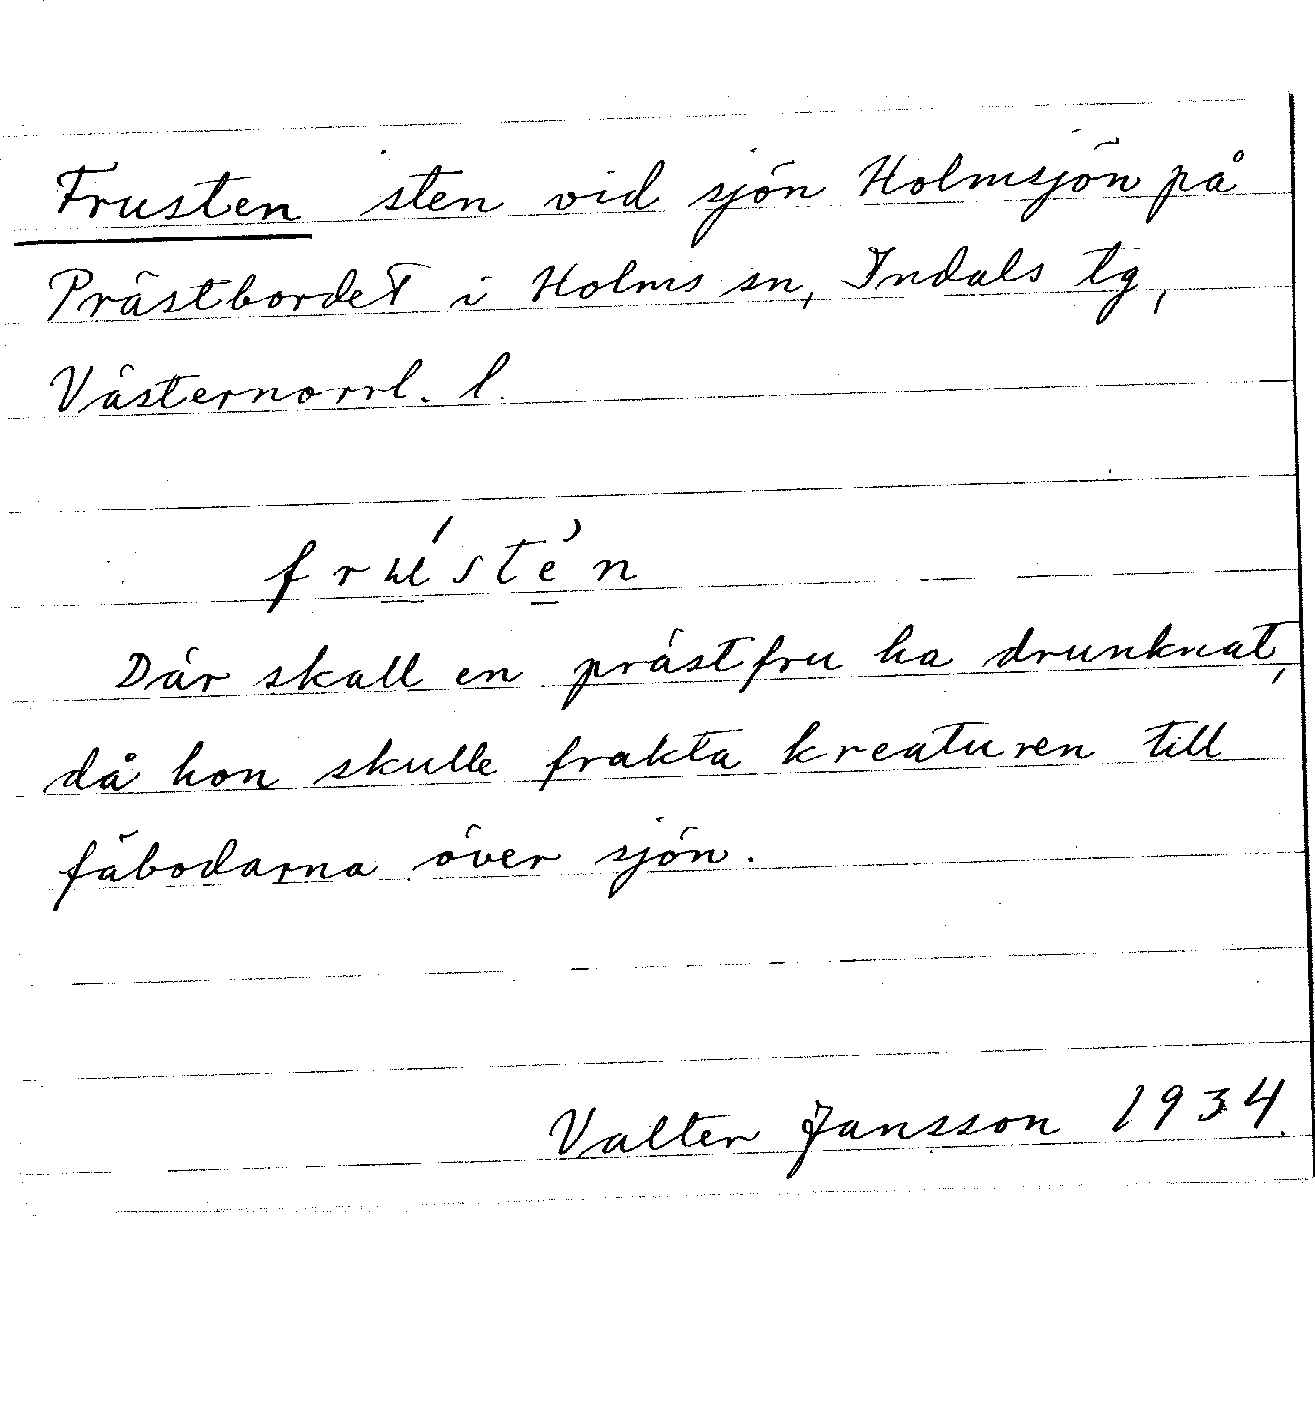 Frusten sten vid sjön Holmsjön på
Prästbordet i Holms sn, Indals tg,
Västernorrl. l.
frústèn
Där skall en prästfru ha drunknat,
då hon skulle frakta kreaturen till
fäbodarna över sjön.
Valter Jansson 1934.